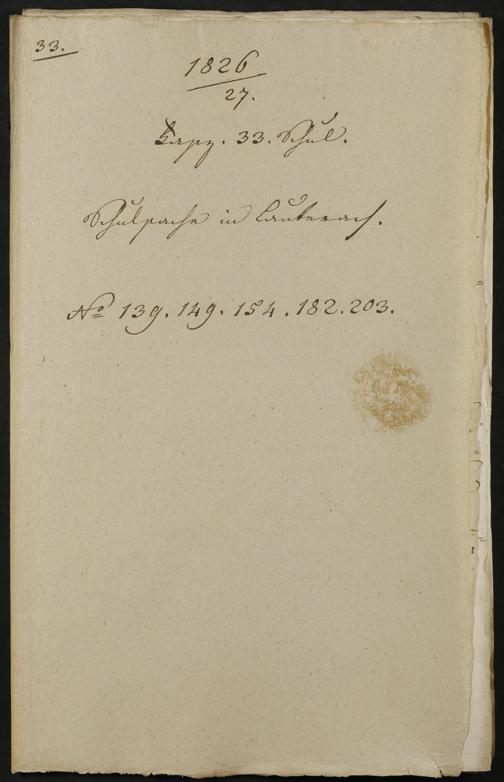 33.
1826
27.
Fasz. 33. Schul.
Schulsache in Lauterach.
No 139. 149. 154. 182. 203.